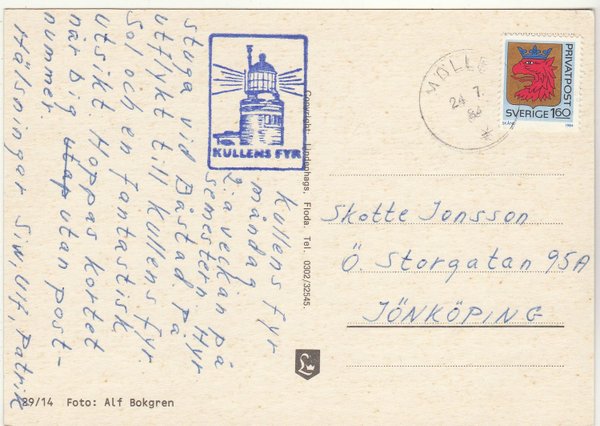 Kullens fyr
måndag
2:a veckan på
semestern. Hyr
stuga vid Båstad. På
utflykt till Kullens fyr.
Sol och en fantastisk
utsikt. Hoppas kortet
når dig utap utan post-
nummer
Hälsningar Siw, Ulf, Patrik
KULLENS FYR
Copyright: Lindenhags. Floda. Tel. 0302/32545.
MÖLLE
24.7.
84
PRIVATPOST
SVERIGE 160
SKÅNE
1984
Skotte Jonsson
Ö. Storgatan 95A
JÖNKÖPING
L
29/14 Foto: Alf Bokgren